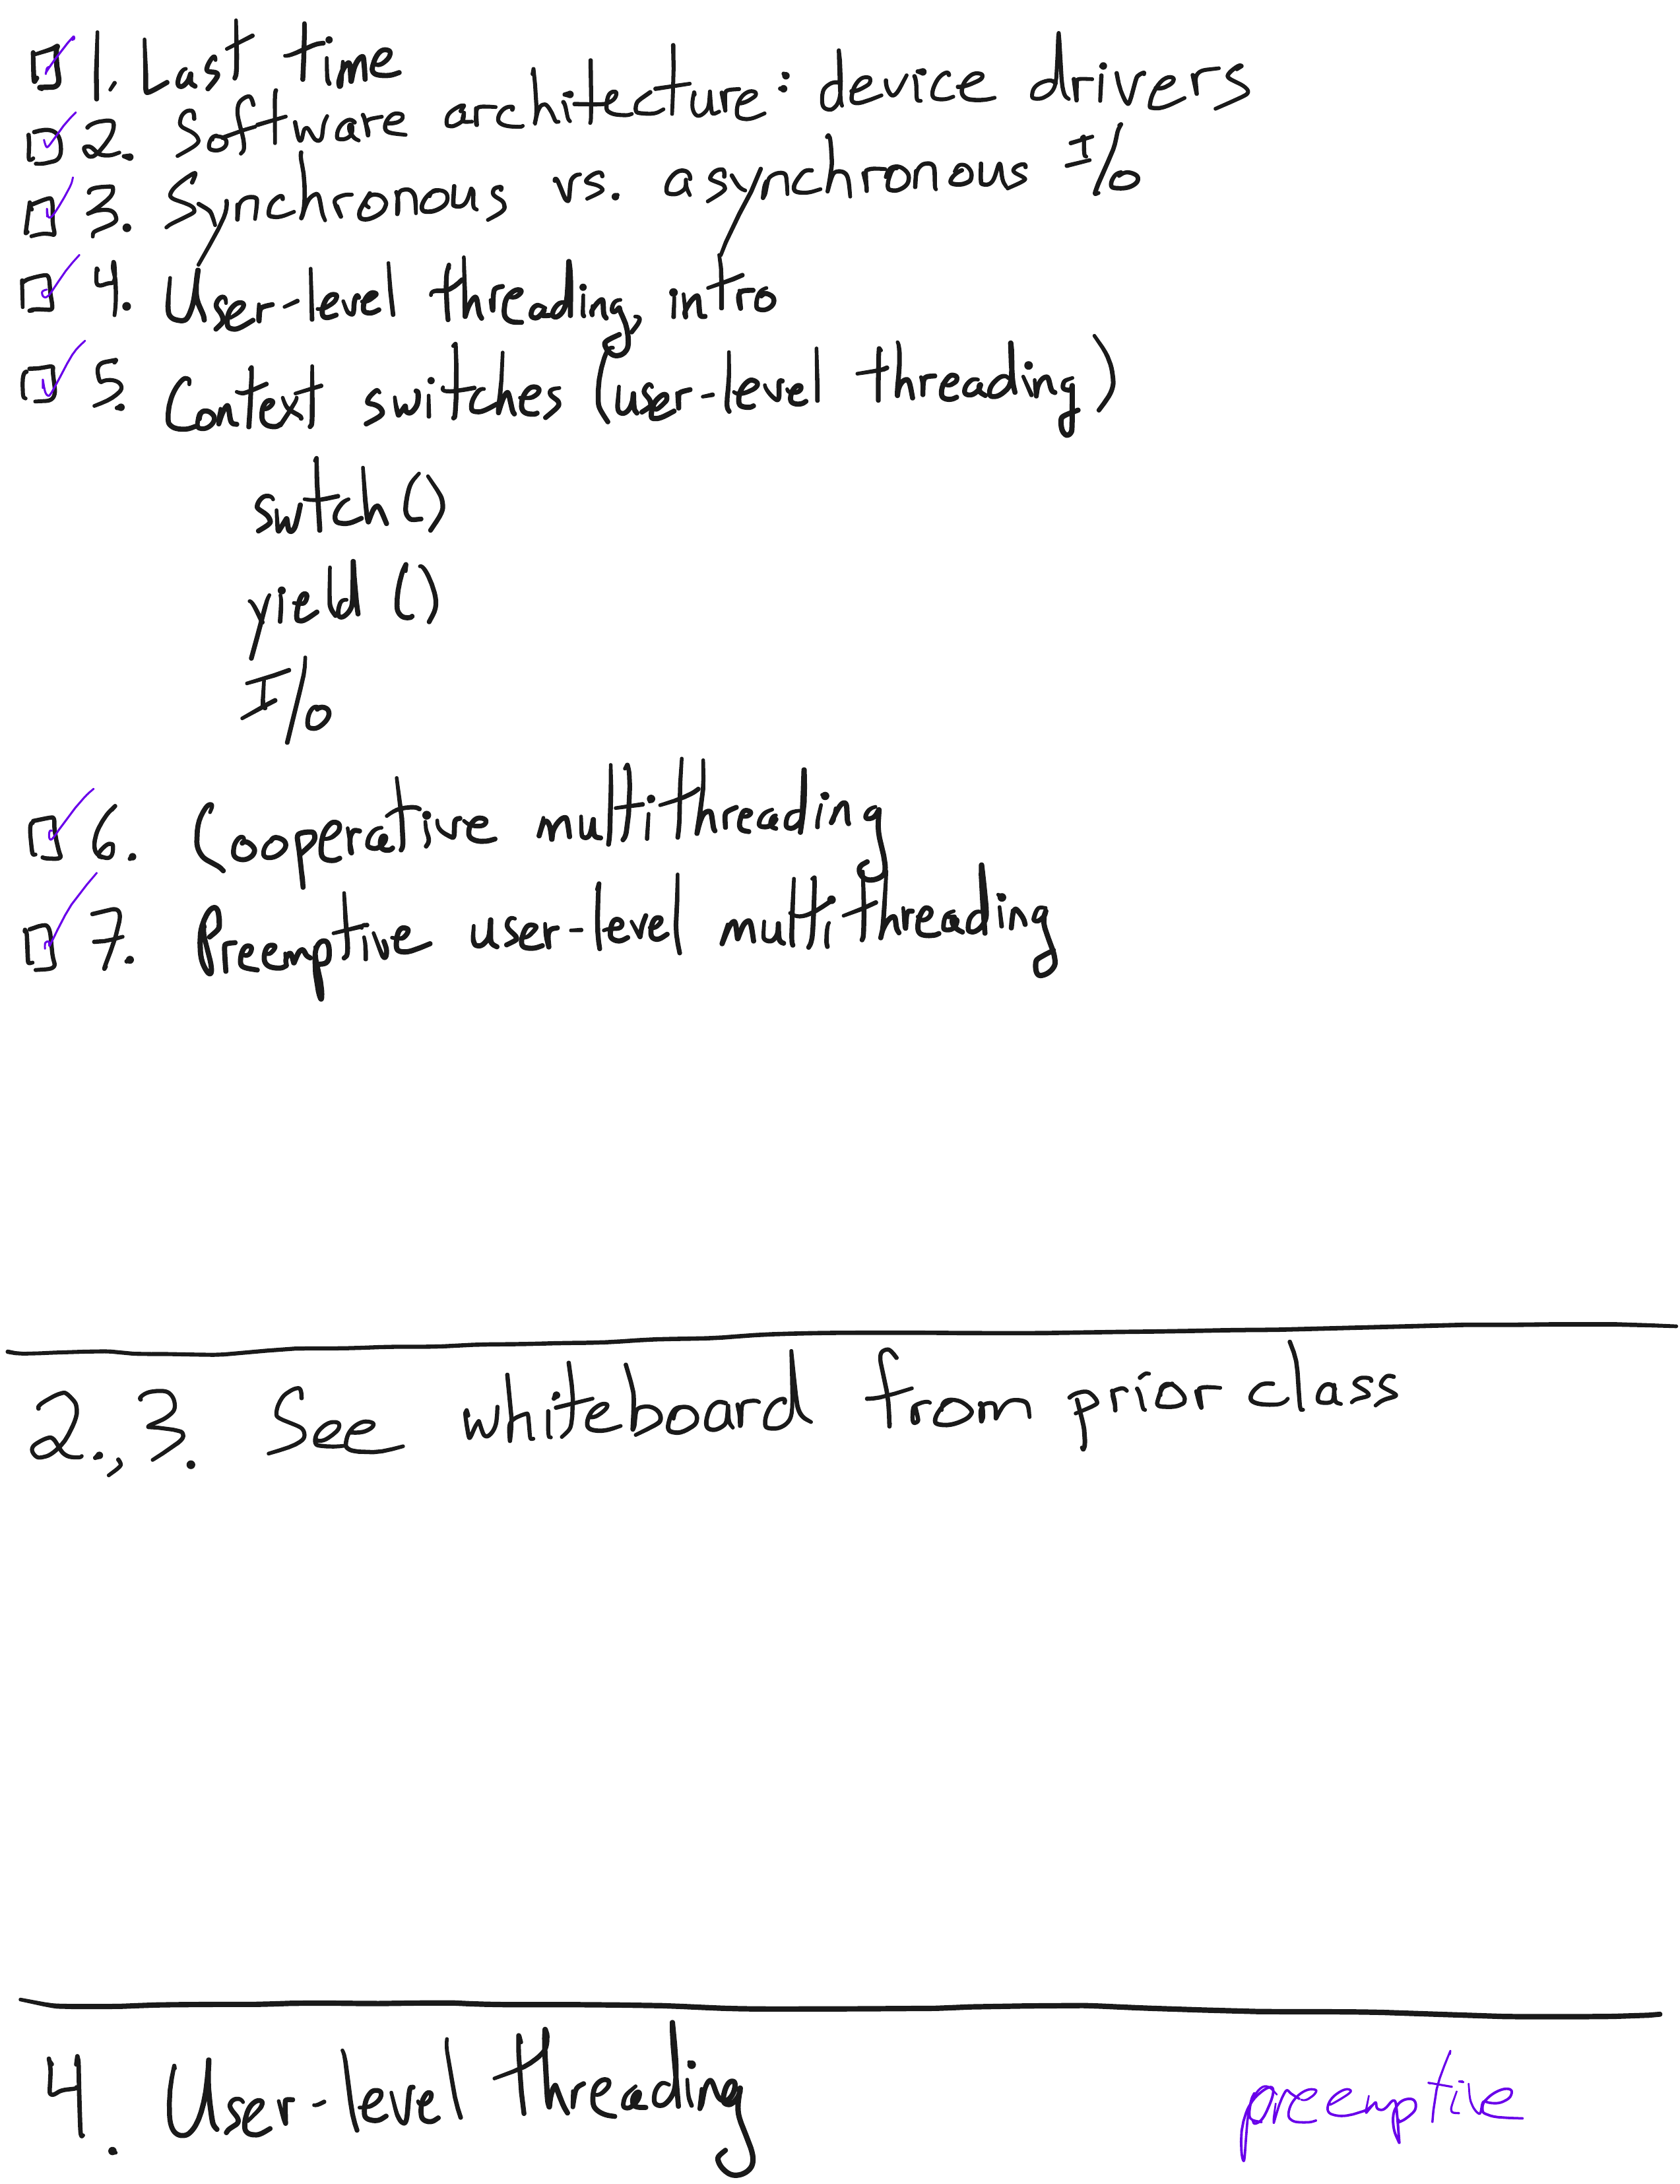 1. Last time
2. Software architecture: device drivers
3. Synchronous vs. asynchronous I/O
4. User-level threading, intro
5. Context switches (user-level threading)
swtch()
yield()
I/O
6. Cooperative multithreading
7. Preemptive user-level multithreading
2., 3. See whiteboard from prior class
4. User-level threading preemptive